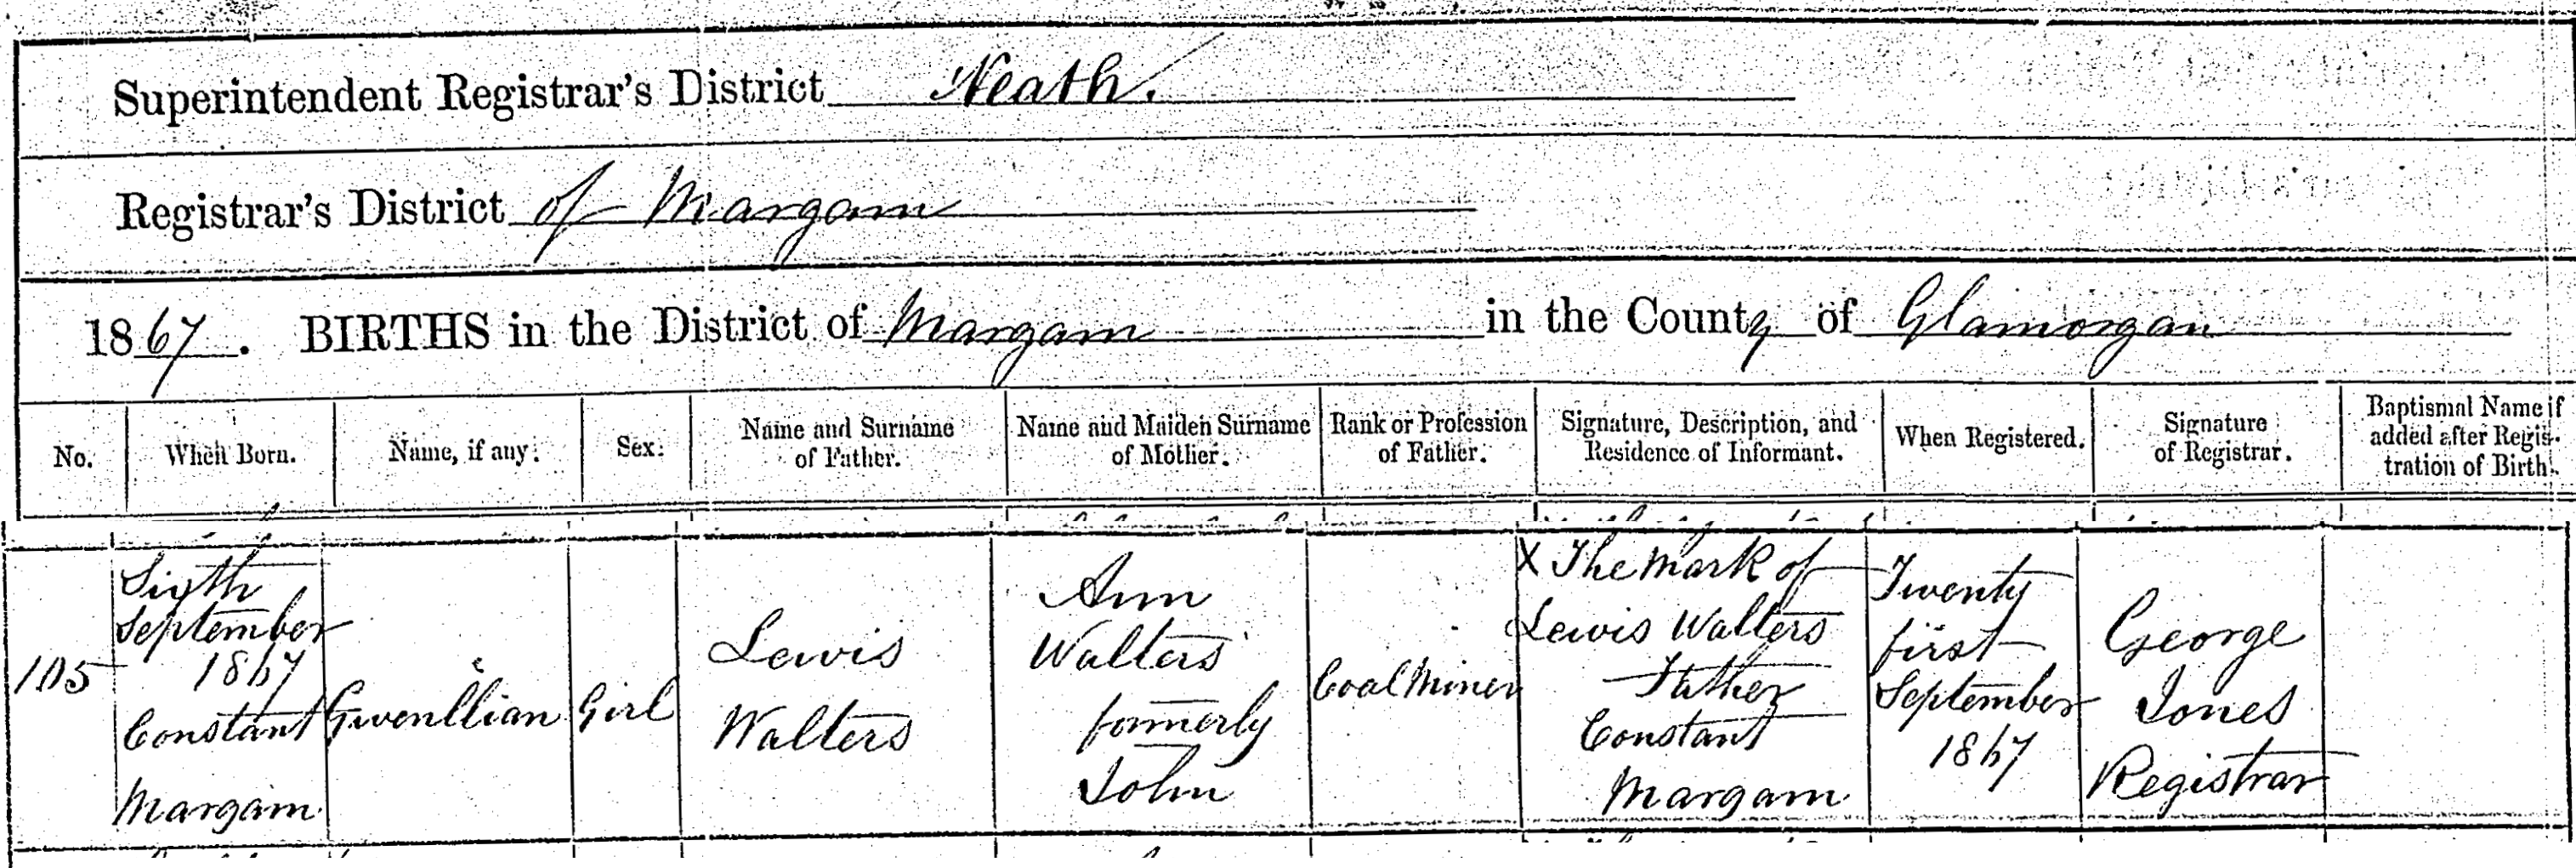 Superintendent Registrar's District Neath.
Registrar's District of Margam
1867. BIRTHS in the District of Margam in the County of Glamorgan
No. When Born. Name, if any. Sex. Name and Surname of Father. Name and Maiden Surname of Mother. Rank or Profession of Father. Signature, Description, and Residence of Informant. When Registered. Signature of Registrar. Baptismal Name if added after Registration of Birth.
105
Sixth
September
1867
Constant
Margam
Gwenllian
Girl
Lewis
Walters
Ann
Walters
formerly
John
Coal Miner
X The Mark of
Lewis Walters
Father
Constant
Margam
Twenty
first
September
1867
George
Jones
Registrar